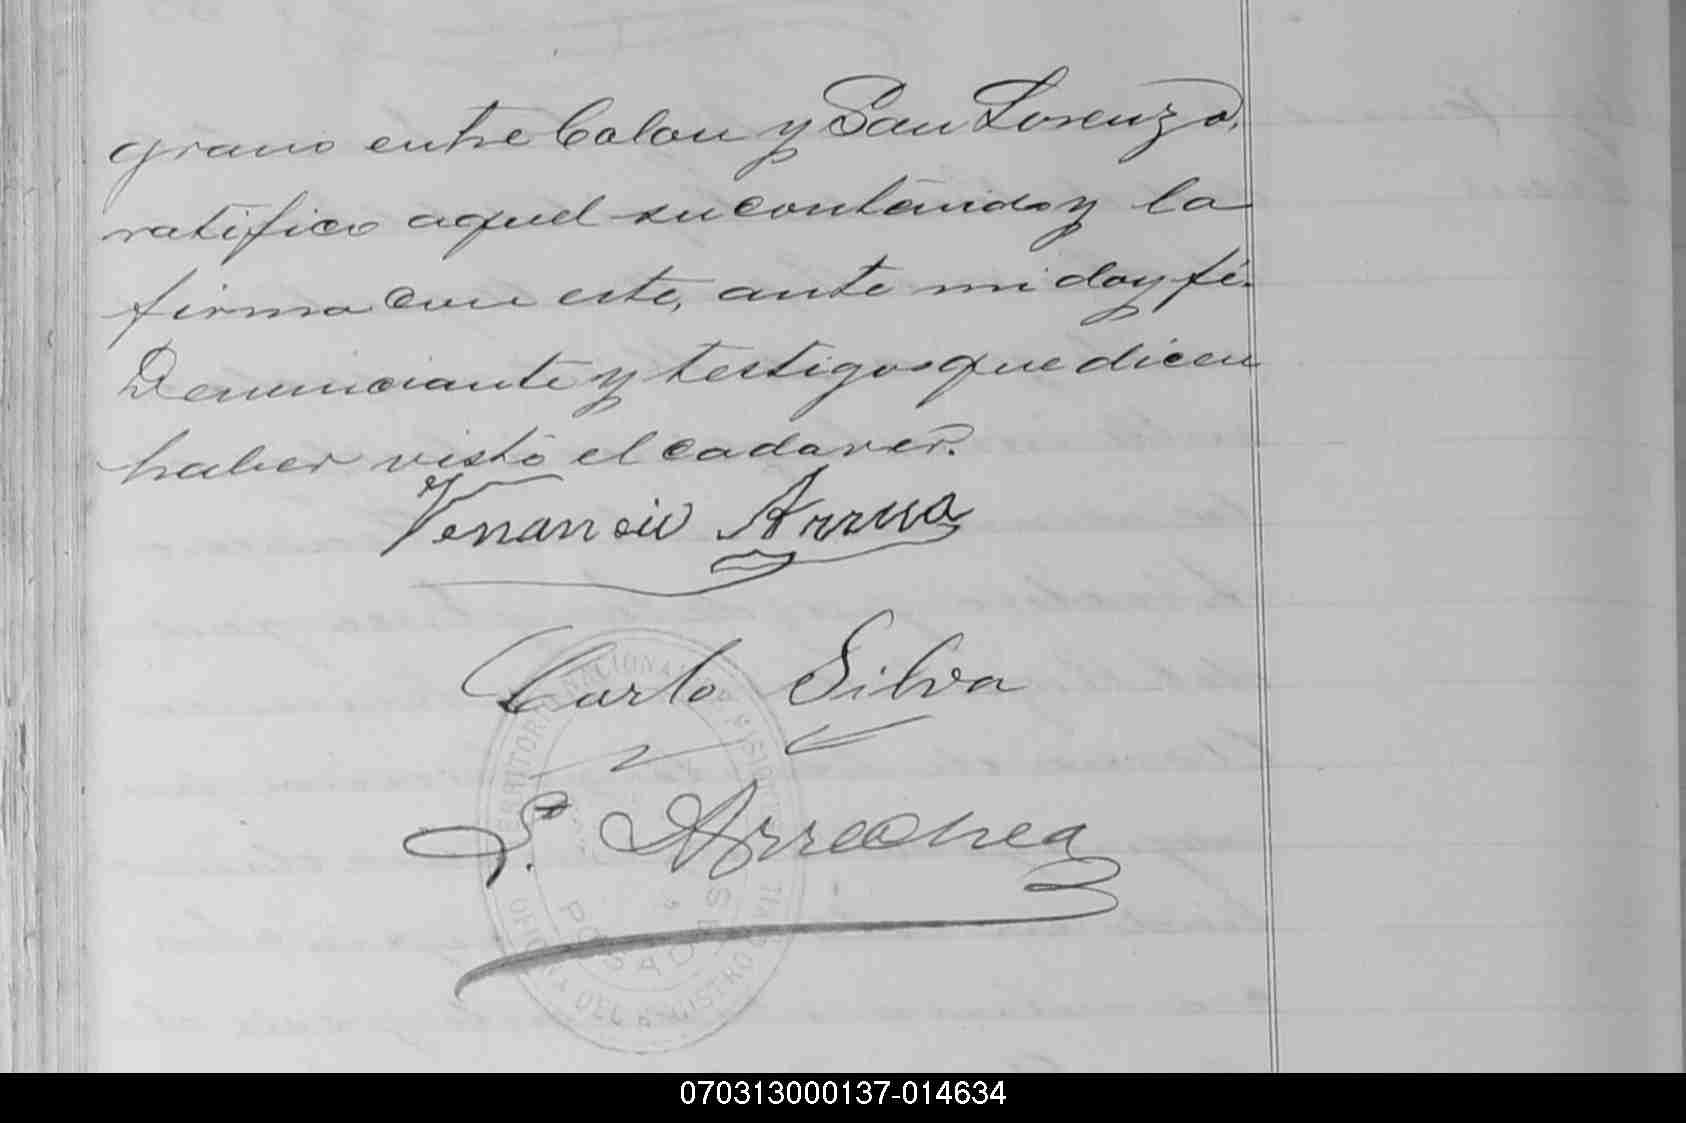 grano entre Colon y San Lorenzo,
ratifico aquel su contenido y la
firma con este, ante mi doy fé.
Denunciante y testigos que dicen
haber visto el cadaver.
Venancio Arrua
Carlo Silva
P. Arrechea
TERRITORIO NACIONAL DE MISIONES
OFICINA DEL REGISTRO CIVIL
POSADAS
070313000137-014634